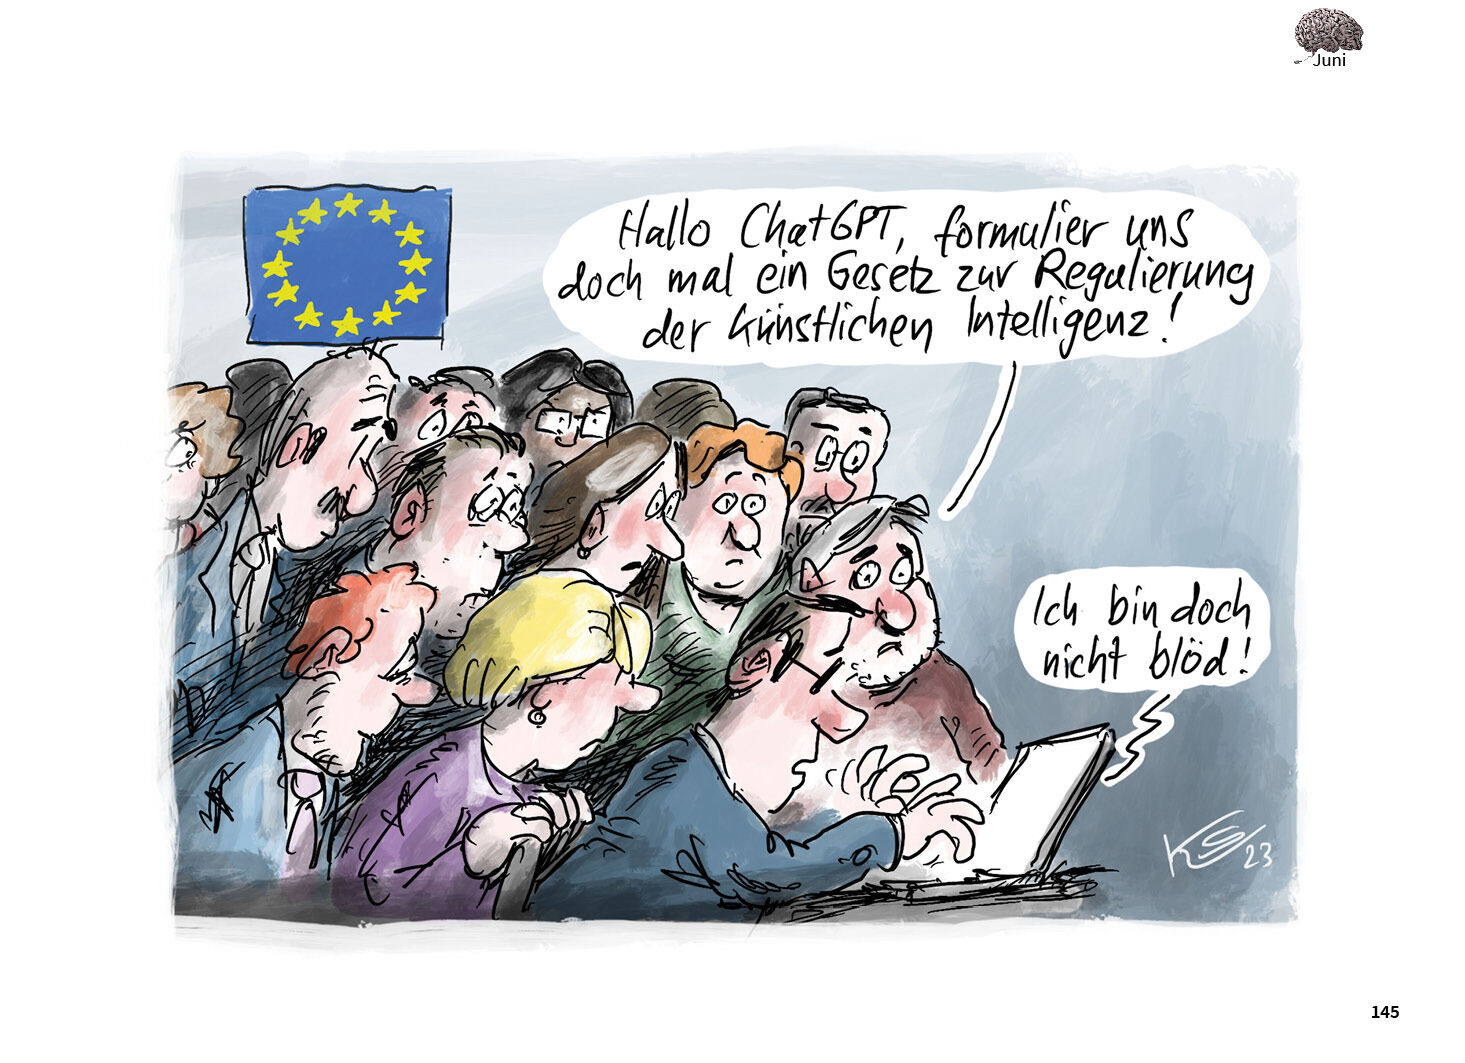 Juni
Hallo ChatGPT, formulier uns
doch mal ein Gesetz zur Regulierung
der künstlichen Intelligenz!
Ich bin doch
nicht blöd!
KS 23
145